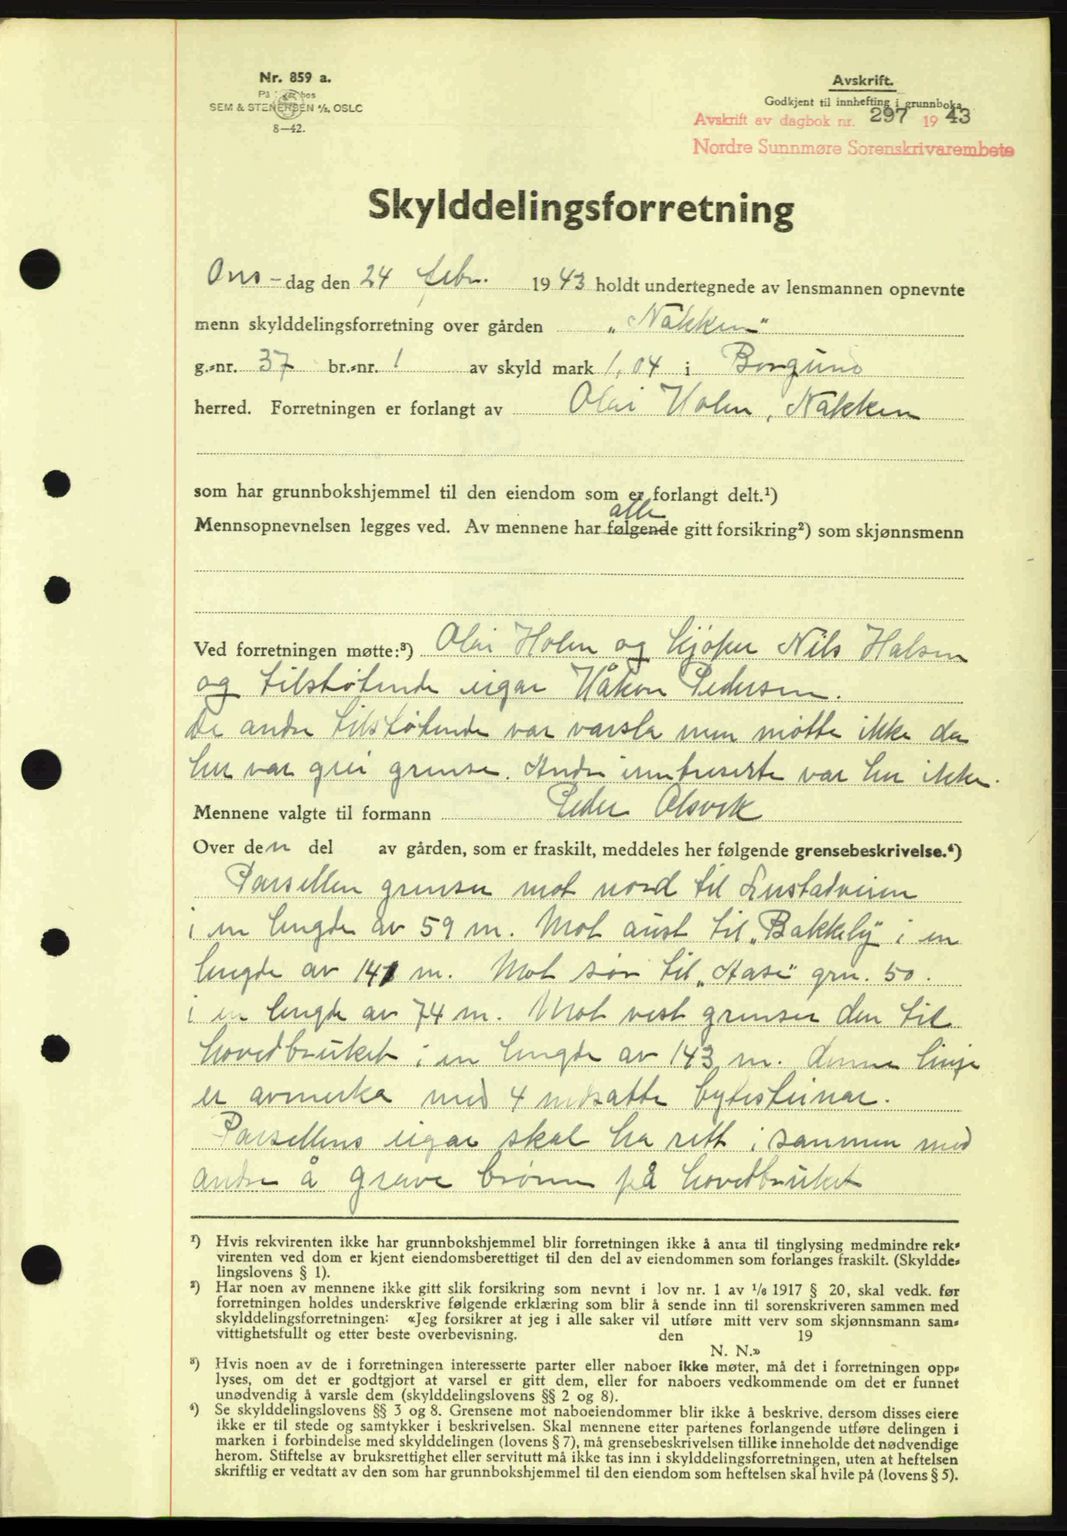 Nr. 859 a.
SEM & STENERSEN A/S, OSLO
8—42.
Avskrift.
Godkjent til innhefting i grunnboka
Avskrift av dagbok nr. 297 1943
Nordre Sunnmøre Sorenskrivarembete
Skylddelingsforretning
Ons-dag den 24 febr. 1943 holdt undertegnede av lensmannen opnevnte
menn skylddelingsforretning over gården „Nakken"
g.-nr. 37 br.-nr. 1 av skyld mark 1,04 i Borgund
herred. Forretningen er forlangt av Olai Holen, Nakken
som har grunnbokshjemmel til den eiendom som er forlangt delt.¹)
alle
Mennsopnevnelsen legges ved. Av mennene har følgende gitt forsikring²) som skjønnsmenn
Ved forretningen møtte:³) Olai Holen og kjøper Nils Halsen
og tilstøtende eigar Håkon Pedersen.
De andre tilstøtende var varsla men møtte ikke da
her var grei grense. Andre interesserte var her ikke.
Mennene valgte til formann Peder Alsvik
Over den del av gården, som er fraskilt, meddeles her følgende grensebeskrivelse.⁴)
Parsellen grenser mot nord til Lerstadveien
i en lengde av 59 m. Mot aust til „Bakkely" i en
lengde av 141 m. Mot sør til „Aase" grn. 50.
i en lengde av 74 m. Mot vest grenser den til
hovedbruket i en lengde av 143 m. denne linje
er avmerka med 4 nedsatte bytesteinar.
Parsellens eigar skal ha rett i sammen med
andre å grave brønn på hovedbruket
¹) Hvis rekvirenten ikke har grunnbokshjemmel blir forretningen ikke å anta til tinglysing medmindre rek-
virenten ved dom er kjent eiendomsberettiget til den del av eiendommen som forlanges fraskilt. (Skyldde-
lingslovens § 1).
²) Har noen av mennene ikke gitt slik forsikring som nevnt i lov nr. 1 av 1/6 1917 § 20, skal vedk. før
forretningen holdes underskrive følgende erklæring som blir å sende inn til sorenskriveren sammen med
skylddelingsforretningen: «Jeg forsikrer at jeg i alle saker vil utføre mitt verv som skjønnsmann sam-
vittighetsfullt og etter beste overbevisning. den 19
N. N.»
³) Hvis noen av de i forretningen interesserte parter eller naboer ikke møter, må det i forretningen opp-
lyses, om det er godtgjort at varsel er gitt dem, eller for naboers vedkommende om det er funnet
unødvendig å varsle dem (skylddelingslovens §§ 2 og 8).
⁴) Se skylddelingslovens §§ 3 og 8. Grensene mot naboeiendommer blir ikke å beskrive, dersom disses eiere
ikke er til stede og samtykker i beskrivelsen. Skal mennene etter partenes forlangende utføre delingen i
marken i forbindelse med skylddelingen (lovens § 7), må grensebeskrivelsen tillike inneholde det nødvendige
herom. Stiftelse av bruksrettighet eller servitutt må ikke tas inn i skylddelingsforretningen, uten at heftelsen
skriftlig er vedtatt av den som har grunnbokshjemmel til den eiendom som heftelsen skal hvile på (lovens § 5).